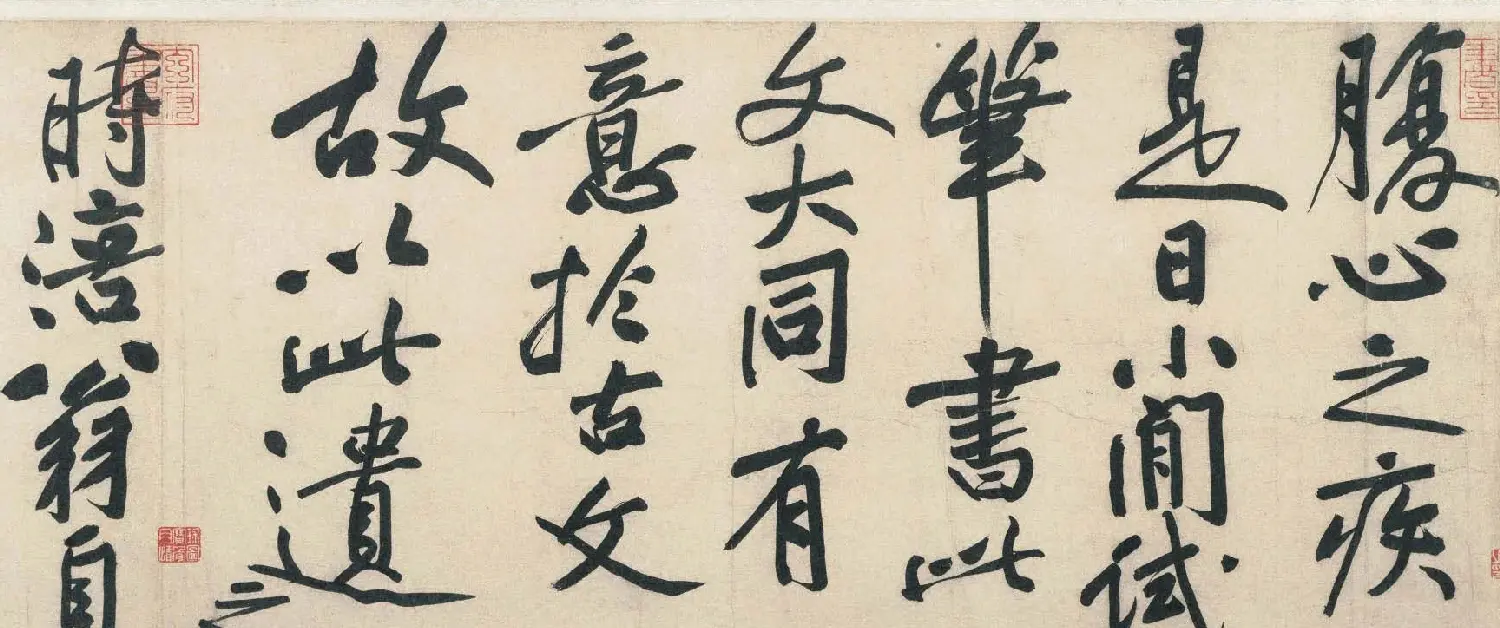 腹心之疾
是日小閒試
筆書此
文大同有
意於古文
故以此遺之
時涪翁自